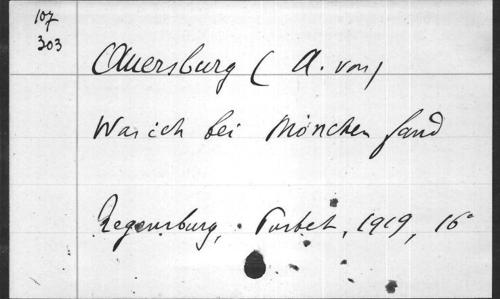 107
303
Auersburg (A. von)
Was ich bei Mönchen fand
Regensburg, Pustet, 1919, 16°